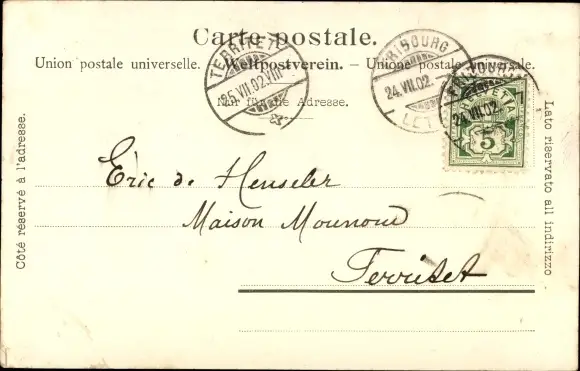 Carte postale.
Union postale universelle. — Weltpostverein. — Unione postale universale.
Nur für die Adresse.
TERRITET
25.VII.02.VIII
FRIBOURG
24.VII.02.
LETT
FRIBOURG
24.VII.02.
HELVETIA
5
Côté réservé à l'adresse.
Lato riservato all indirizzo.
Eric de Henseler
Maison Mounoud
Territet